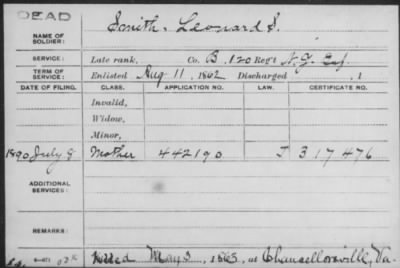 DEAD
NAME OF SOLDIER: Smith, Leonard S.
SERVICE: Late rank, Co. B, 120 Reg't N.Y. Inf.
TERM OF SERVICE: Enlisted Aug 11, 1862 Discharged , 1
DATE OF FILING. CLASS. APPLICATION NO. LAW. CERTIFICATE NO.
Invalid,
Widow,
Minor,
1890 July 8 Mother 442190 J 317476
ADDITIONAL SERVICES:
REMARKS:
Killed May 3, 1863, at Chancellorsville, Va.